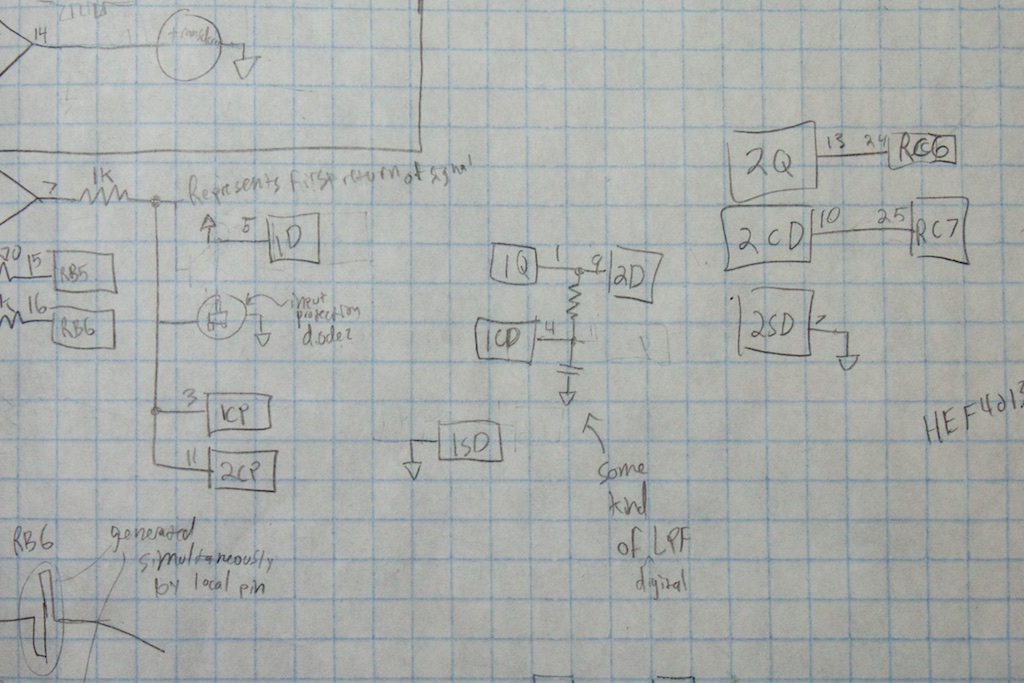 14
7
1K
Represents first return of signal
5
1D
15
RB5
16
RB6
input
protection
diodez
3
1CP
11
2CP
1Q
1
9
2D
1CD
4
1SD
some
kind
of LPF
digital
2Q
13
24
RC6
2CD
10
25
RC7
2SD
HEF4013
RB6
generated
simultaneously
by local pin